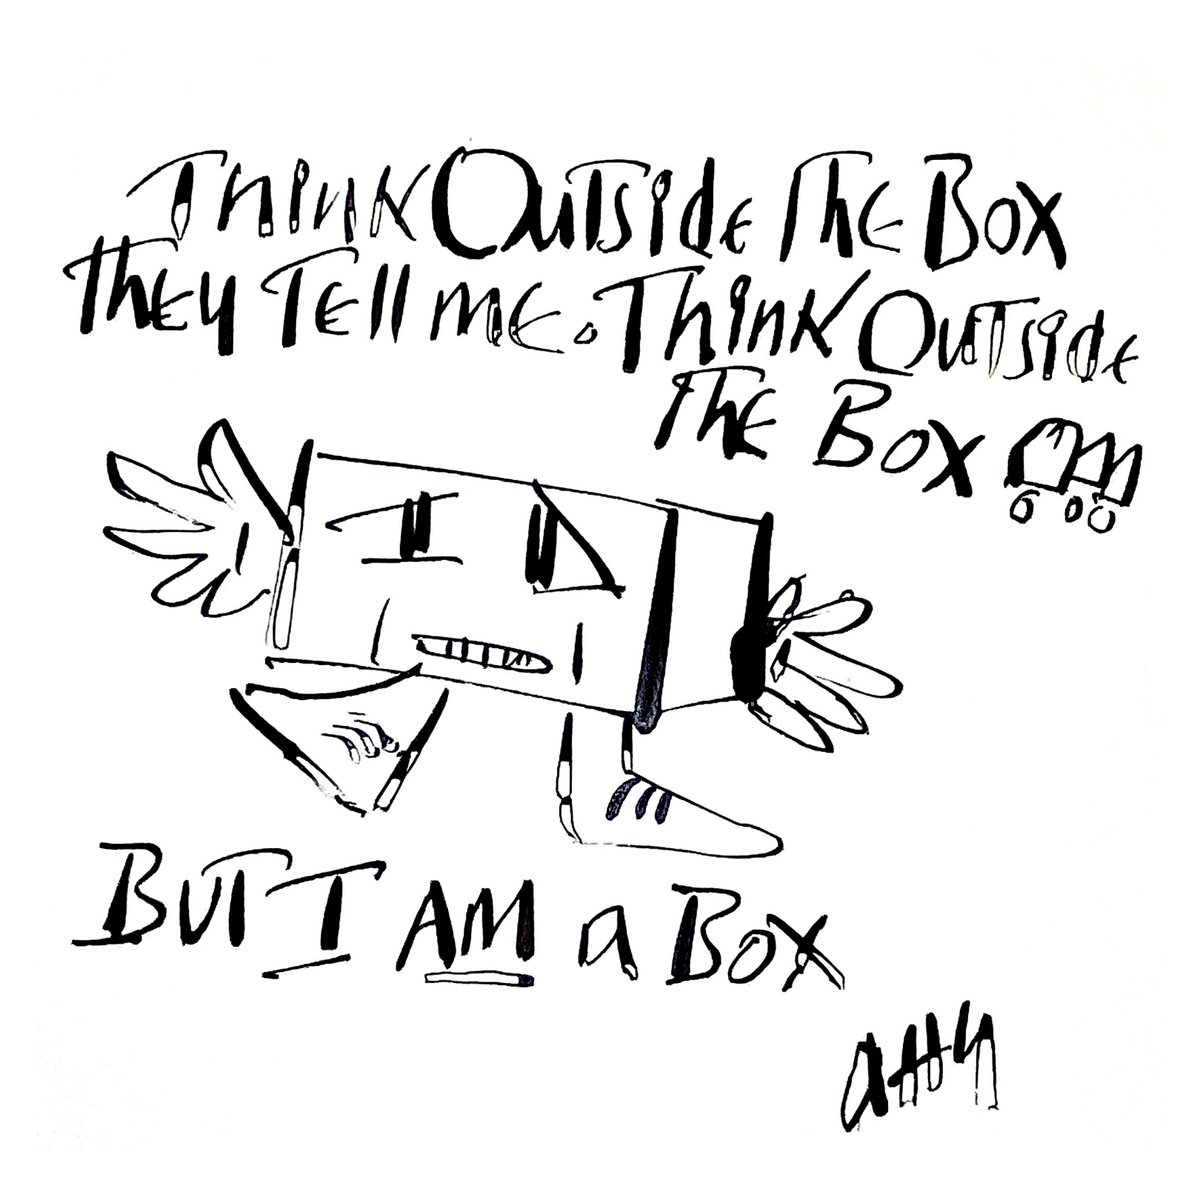 Think Outside The Box
They Tell me. Think Outside
The Box
But I AM a Box
atty